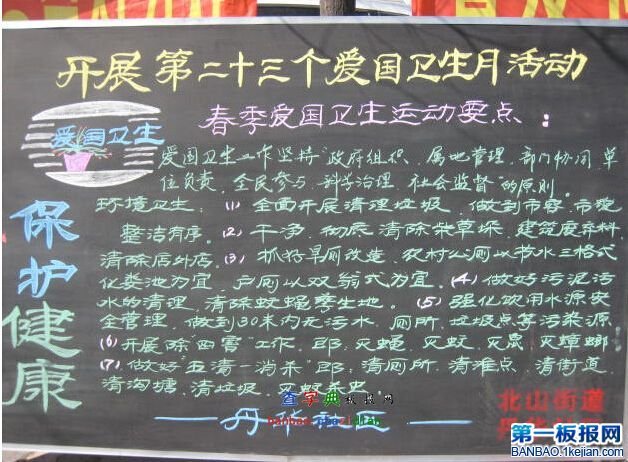 开展第二十三个爱国卫生月活动
春季爱国卫生运动要点：
爱国卫生
爱国卫生工作坚持"政府组织、属地管理、部门协同、单
位负责、全民参与、科学治理、社会监督"的原则。
环境卫生：(1) 全面开展清理垃圾，做到市容、市貌
整洁有序。(2) 干净 彻底 清除柴草垛、建筑废弃料，
清除店外店。(3) 抓好旱厕改造，农村公厕以节水三格式
化粪池为宜，户厕以双瓮式为宜。(4) 做好污泥污
水的清理，清除蚊蝇孳生地。(5) 强化饮用水源安
全管理，做到30米内无污水、厕所、垃圾点等污染源
(6) 开展除"四害"工作，即、灭蝇、灭蚊、灭鼠、灭蟑螂。
(7) 做好"五清一消杀"即：清厕所、清滩点、清街道
清沟塘、清垃圾、灭蚊杀虫。
保护健康
丹华社区
北山街道
第一板报网
BANBAO.1kejian.com